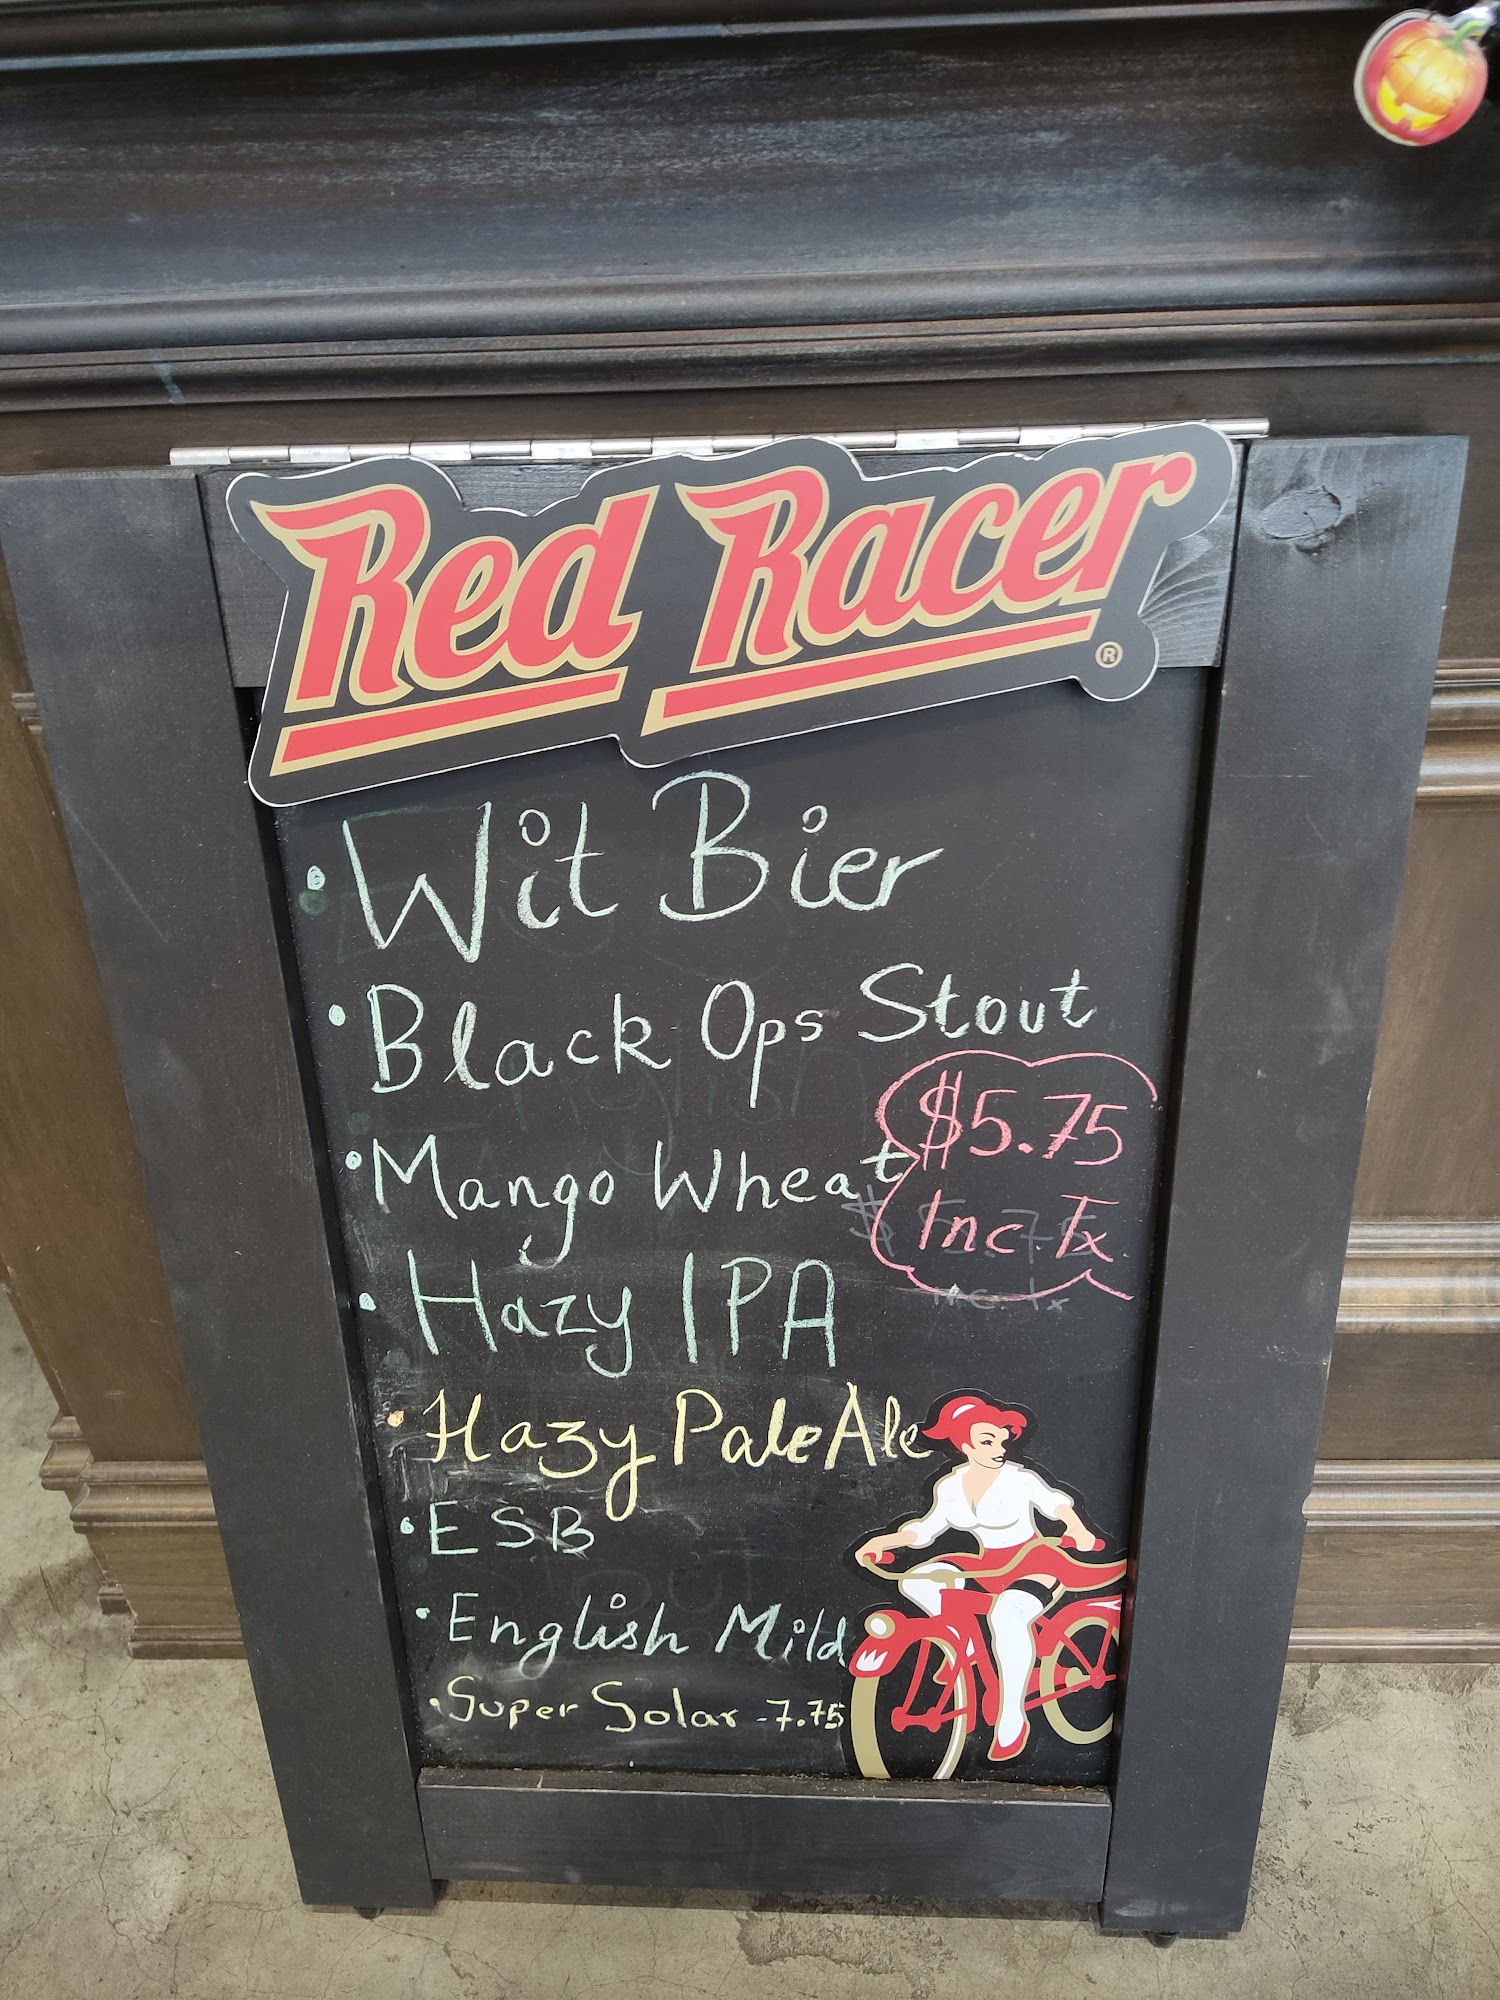 Red Racer®
• Wit Bier
• Black Ops Stout
$5.75
Inc. Tx
• Mango Wheat
• Hazy IPA
• Hazy Pale Ale
• ESB
• English Mild
• Super Solar - 7.75